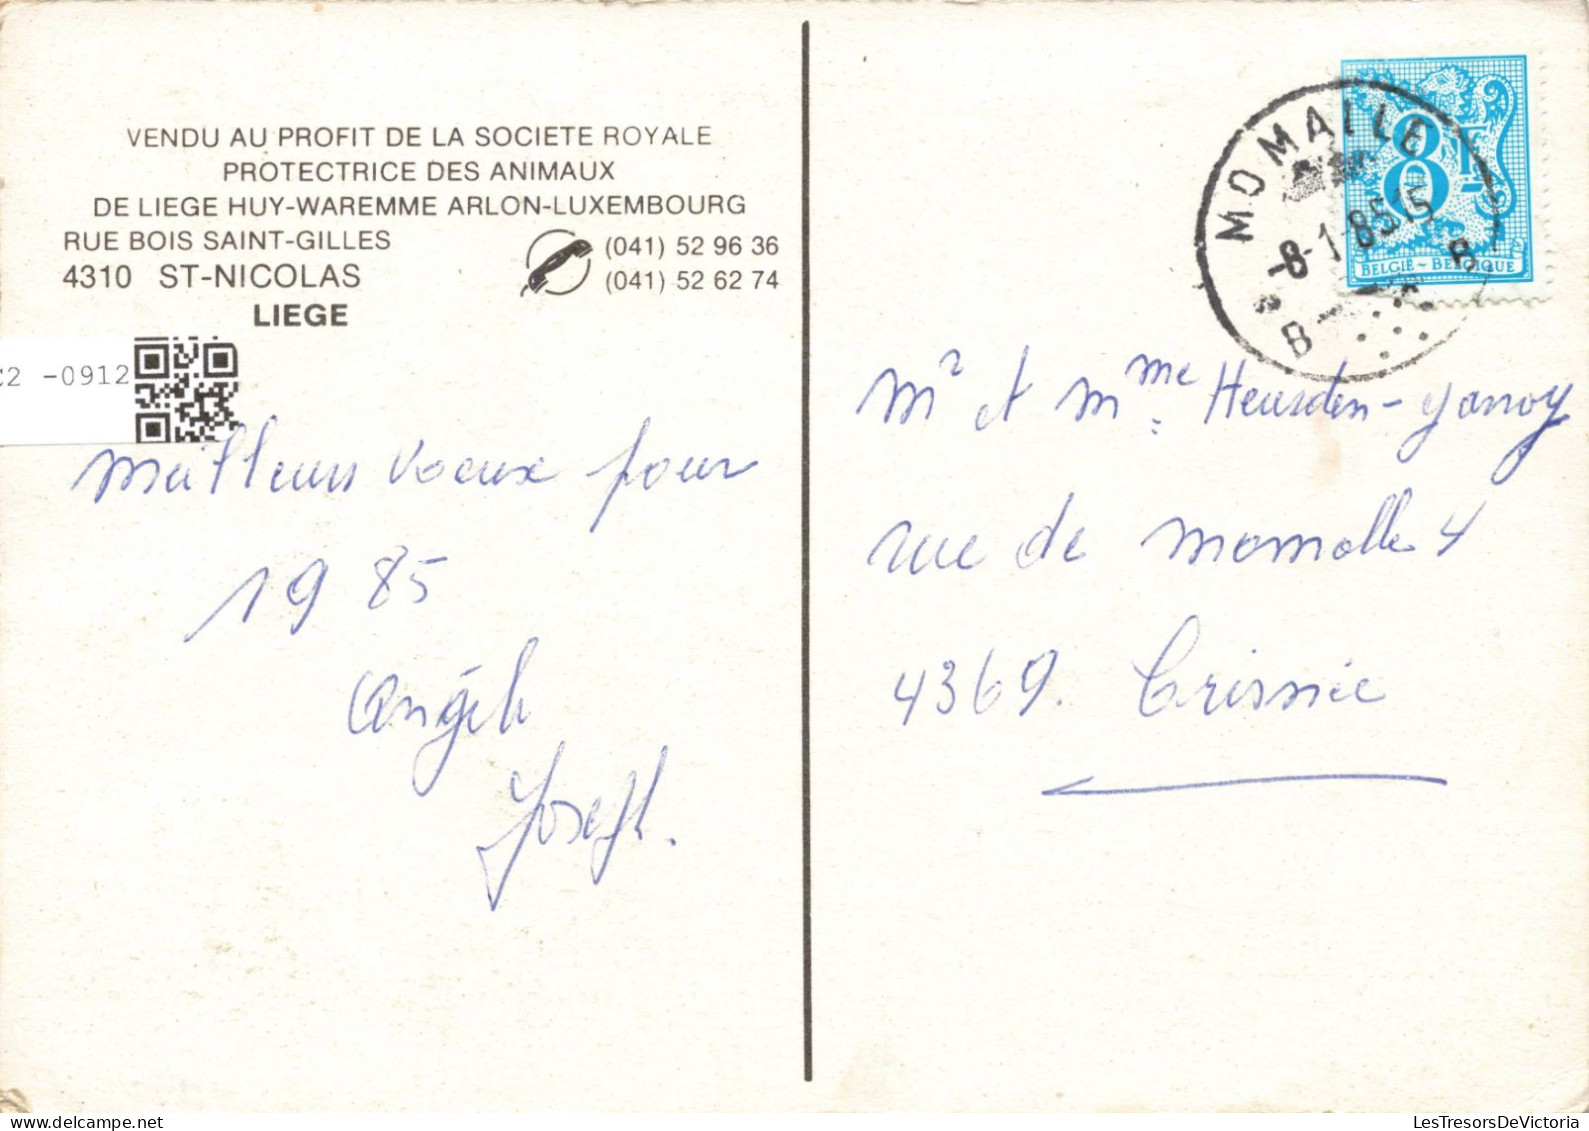 VENDU AU PROFIT DE LA SOCIETE ROYALE
PROTECTRICE DES ANIMAUX
DE LIEGE HUY-WAREMME ARLON-LUXEMBOURG
RUE BOIS SAINT-GILLES
4310 ST-NICOLAS
LIEGE
(041) 52 96 36
(041) 52 62 74
-0912
Meilleurs voeux pour
1985
Angèle
Joseph.
MOMALLE
-8-1-85 15
B B
8F
BELGIE - BELGIQUE
Mr et Mme Heusden-
rue de Momalle 4
4369. Crisnée
LesTresorsDeVictoria